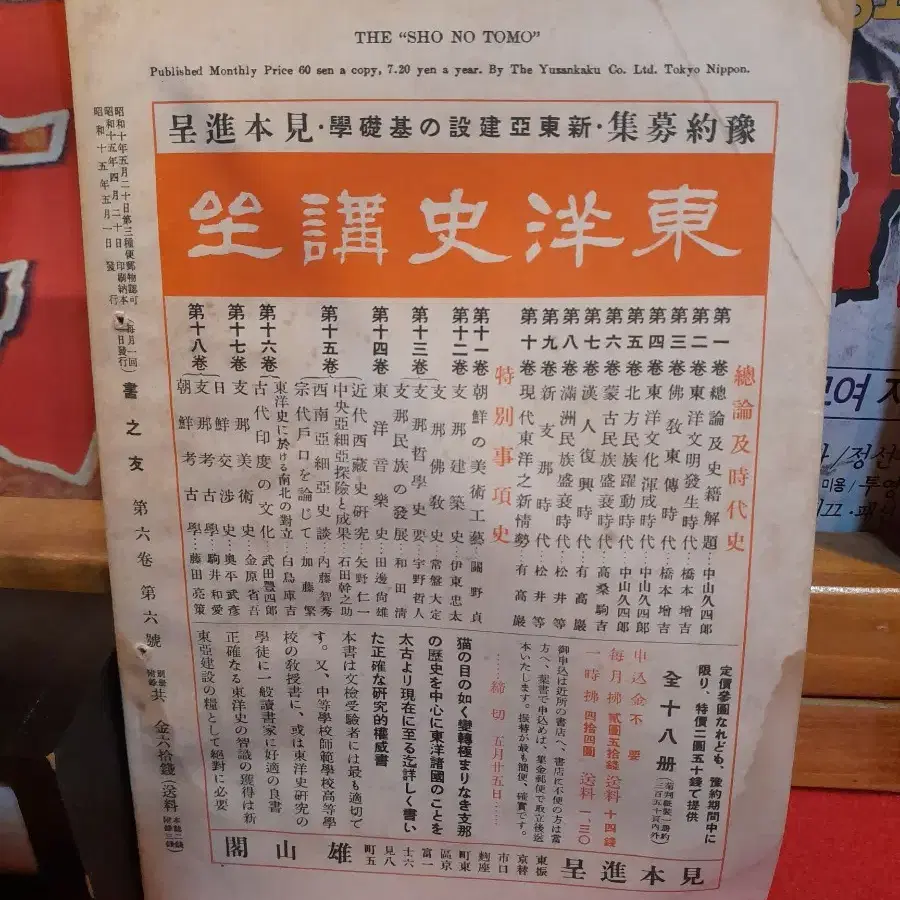 THE "SHO NO TOMO"
Published Monthly Price 60 sen a copy, 7.20 yen a year. By The Yuzankaku Co. Ltd. Tokyo Nippon.
豫約募集・新東亞建設の基礎學・見本進呈
東洋史講坐
總論及時代史
第一卷 總論及史籍解題 中山久四郎
第二卷 東洋文明發生時代 橋本增吉
第三卷 佛敎東傳時代 橋本增吉
第四卷 東洋文化渾成時代 中山久四郎
第五卷 北方民族躍動時代 中山久四郎
第六卷 蒙古民族盛衰時代 高桑駒吉
第七卷 漢人復興時代 有高巖
第八卷 滿洲民族盛衰時代 松井等
第九卷 新支那時代 松井等
第十卷 現代東洋之新情勢 有高巖
特別事項史
第十一卷 朝鮮の美術工藝 關野貞
第十二卷 支那建築史 伊東忠太
支那佛敎史 常盤大定
第十三卷 支那哲學史 宇野哲人
支那民族の發展 和田淸
第十四卷 東洋音樂史 田邊尙雄
近代西藏史硏究 矢野仁一
第十五卷 中央亞細亞探險と成果 石田幹之助
西南亞細亞史談 內藤智秀
宗代戶口を論じて 加藤繁
東洋史に於ける南北の對立 白鳥庫吉
第十六卷 古代印度の文化 武田豐四郎
支那美術史 金原省吾
第十七卷 日鮮交涉史 奥平武彦
支那考古學 駒井和愛
第十八卷 朝鮮考古學 藤田亮策
定價參圓なれども、豫約期間中に
限り、特價二圓五十錢で提供
全十八册
申込金不要
每月拂 貳圓五拾錢 送料十四錢
一時拂 四拾四圓 送料一、三〇
御申込は近所の書店へ、書店に不便の方は當
方へ、葉書で申込めば、集金郵便で取立後送
本いたします。振替が最も簡便、確實です。
……締切 五月廿五日……
猫の目の如く變轉極まりなき支那
の歷史を中心に東洋諸國のことを
太古より現在に至る迄詳しく書い
た正確な硏究的權威書
本書は文檢受驗者には最も適切で
す。又、中等學校師範學校高等學
校の敎授書に、或は東洋史硏究の
學徒に一般讀書家に好適の良書
正確なる東洋史の智識の獲得は新
東亞建設の糧として絕對に必要
見本進呈
東京市麴町區富士見町
振替口座東京一六八五
雄山閣
昭和十年五月二十日第三種便郵物認可
昭和十五年四月二十日印刷納本
昭和十五年五月一日發行
(每月一回一日發行)
書之友 第六卷 第六號
共 金六拾錢
여 지
미용/투영